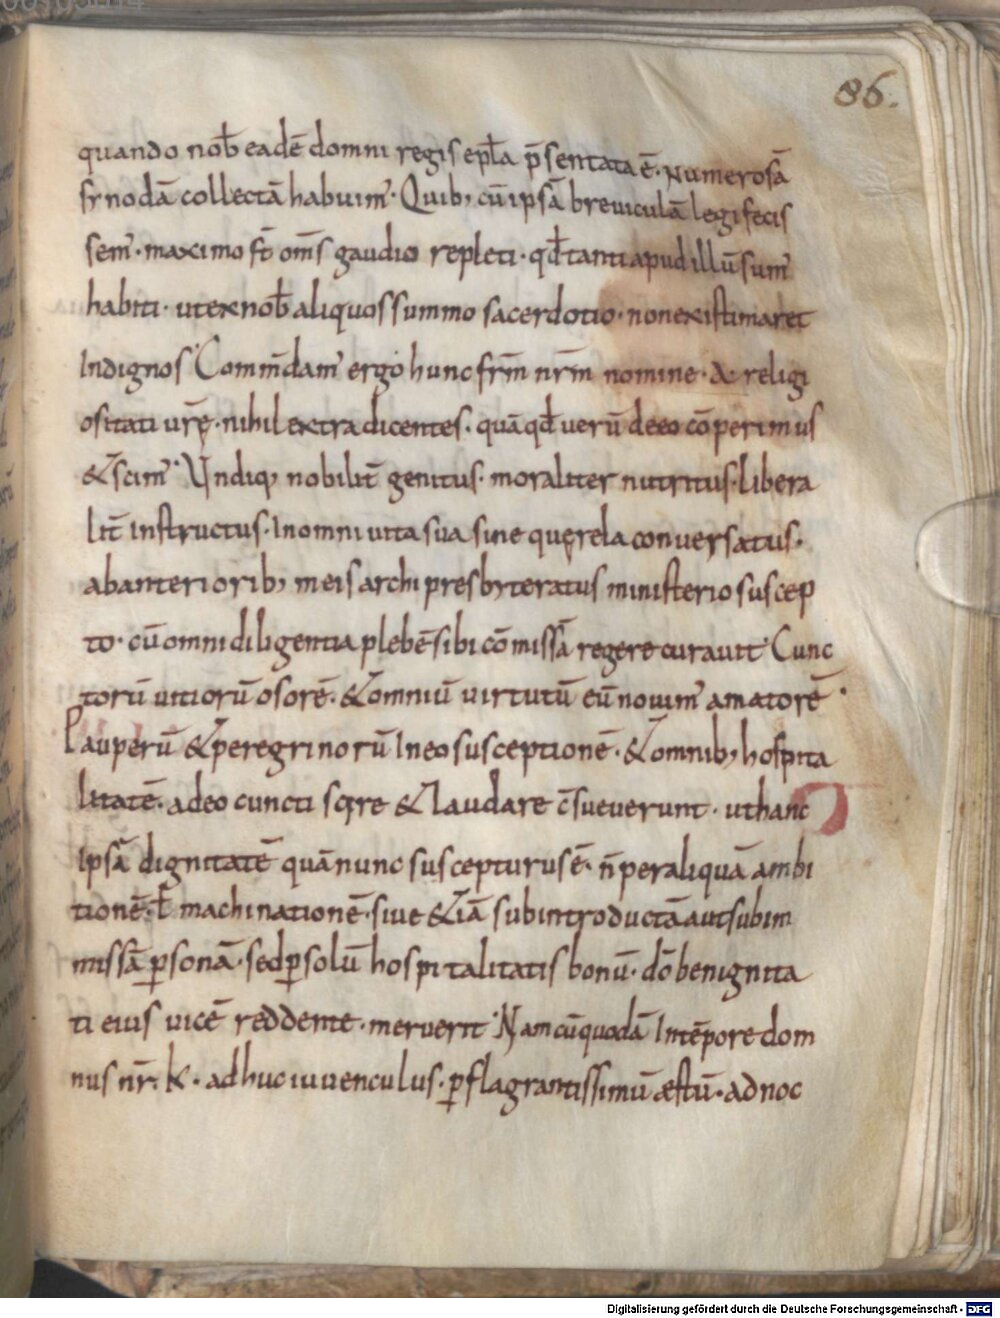 86.
quando nob̅ eadē domni regis epl̅a p̅sentata ē. Numerosā
synodā collectā habuim᾽. Quib; cū ipsā breviculā legi fecis
sem᾽. maximo fc̅ om̅s gaudio repleti. qd̅ tanti apud illū sum᾽
habiti. ut ex nob̅ aliquos summo sacerdotio. non existimaret
Indignos. Comm̅dam᾽ ergo hunc frm̅ nrm̅ nomine. & religi
ositati vrę̅. nihil extra dicentes. quā qd̅ verū de eo cōperimus
& scim᾽. Undiq; nobilit̅ genitus. moraliter nutritus. libera
lit̅ instructus. In omni vita sua sine querela conversatus.
ab anteriorib; meis archipresbyteratus ministerio suscep
to. cū omni diligentia plebē sibi cōmissā regere curavit. Cunc
torū vitiorū osorē. & omniū virtutū eū novim᾽ amatorē.
Pauperū & peregrinorū In eo susceptionē. & omnib; hospita
litatē. adeo cuncti scire & laudare c̅sueverunt. ut hanc
Ipsā dignitatē quā nunc suscepturus ē. n̅ per aliquā ambi
tionē. ł machinationē. sive & iā subintroductā aut subim
missā ꝑsonā. sed ꝑ solū hospitalitatis bonū. dō benignita
ti eius vicē reddente. meruerit. Nam cū quodā Intēpore dom
nus nr̅. K. adhuc iuvenculus. ꝑ flagrantissimū æstū. ad noc
Digitalisierung gefördert durch die Deutsche Forschungsgemeinschaft - DFG